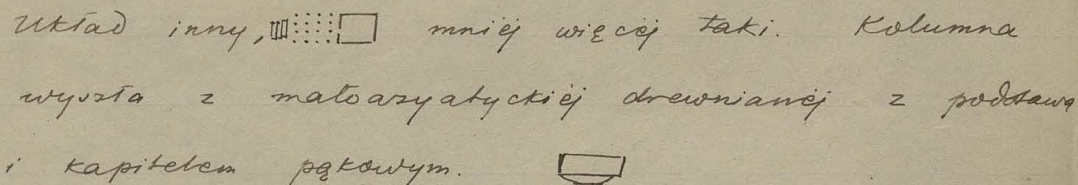 Układ inny, mniéj więcéj taki. Kolumna
wyszła z małoazyatyckiéj drewnianéj z podstawą
i kapitelem pąkowym.